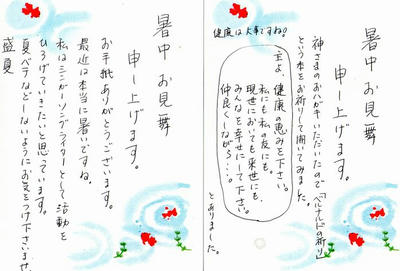 暑中お見舞
申し上げます。
神さまのおハガキいただいたので「ベルナルドの祈り」
という本をお祈りして開いてみました。
主よ、健康の恵みを下さい。
私にも私の友にも。
現世においても来世にも。
みなを幸せにして下さい。
仲良くしながら…。
とありました。
健康は大事ですね!
暑中お見舞
申し上げます。
お手紙ありがとうございます。
最近は本当に暑いですね。
私はシンガーソングライターとして活動を
ひろげていきたいと思っています。
夏バテなどしないようにお気をつけ下さいませ
盛夏